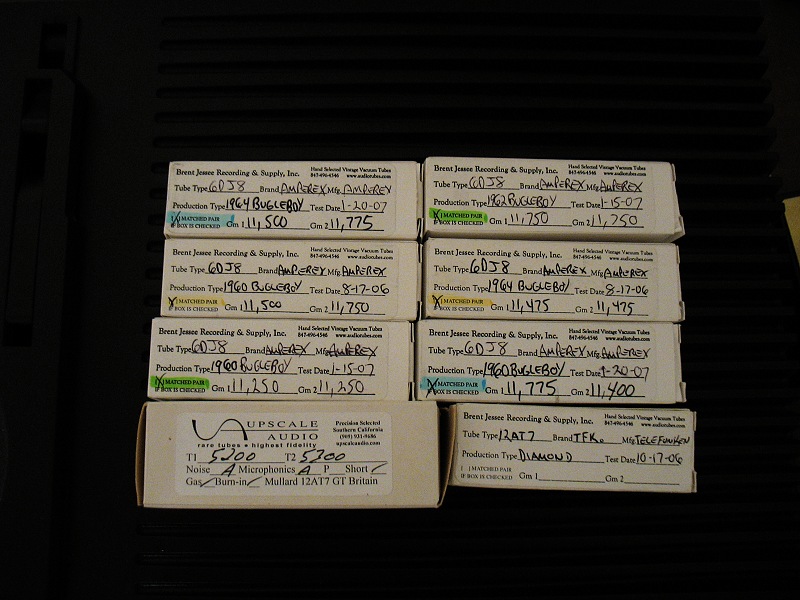 Brent Jessee Recording & Supply, Inc. Hand Selected Vintage Vacuum Tubes
847-496-4546 www.audiotubes.com
Tube Type 6DJ8 Brand AMPEREX Mfg. AMPEREX
Production Type 1964 BUGLEBOY Test Date 1-20-07
[X] MATCHED PAIR
IF BOX IS CHECKED Gm 1 11,500 Gm 2 11,775
Brent Jessee Recording & Supply, Inc. Hand Selected Vintage Vacuum Tubes
847-496-4546 www.audiotubes.com
Tube Type 6DJ8 Brand AMPEREX Mfg. AMPEREX
Production Type 1962 BUGLEBOY Test Date 1-15-07
[X] MATCHED PAIR
IF BOX IS CHECKED Gm 1 11,750 Gm 2 11,250
Brent Jessee Recording & Supply, Inc. Hand Selected Vintage Vacuum Tubes
847-496-4546 www.audiotubes.com
Tube Type 6DJ8 Brand AMPEREX Mfg. AMPEREX
Production Type 1960 BUGLEBOY Test Date 8-17-06
[X] MATCHED PAIR
IF BOX IS CHECKED Gm 1 11,500 Gm 2 11,750
Brent Jessee Recording & Supply, Inc. Hand Selected Vintage Vacuum Tubes
847-496-4546 www.audiotubes.com
Tube Type 6DJ8 Brand AMPEREX Mfg. AMPEREX
Production Type 1964 BUGLEBOY Test Date 8-17-06
[X] MATCHED PAIR
IF BOX IS CHECKED Gm 1 11,475 Gm 2 11,475
Brent Jessee Recording & Supply, Inc. Hand Selected Vintage Vacuum Tubes
847-496-4546 www.audiotubes.com
Tube Type 6DJ8 Brand AMPEREX Mfg. AMPEREX
Production Type 1960 BUGLEBOY Test Date 1-15-07
[X] MATCHED PAIR
IF BOX IS CHECKED Gm 1 11,250 Gm 2 11,250
Brent Jessee Recording & Supply, Inc. Hand Selected Vintage Vacuum Tubes
847-496-4546 www.audiotubes.com
Tube Type 6DJ8 Brand AMPEREX Mfg. AMPEREX
Production Type 1960 BUGLEBOY Test Date 1-20-07
[X] MATCHED PAIR
IF BOX IS CHECKED Gm 1 11,775 Gm 2 11,400
UPSCALE
AUDIO
rare tubes • highest fidelity
Precision Selected
Southern California
(909) 931-9686
upscaleaudio.com
T1 5200 T2 5300
Noise A Microphonics A P Short
Gas Burn-in Mullard 12AT7 GT Britain
Brent Jessee Recording & Supply, Inc. Hand Selected Vintage Vacuum Tubes
847-496-4546 www.audiotubes.com
Tube Type 12AT7 Brand TFK. Mfg. TELEFUNKEN
Production Type DIAMOND Test Date 10-17-06
[ ] MATCHED PAIR
IF BOX IS CHECKED Gm 1 Gm 2